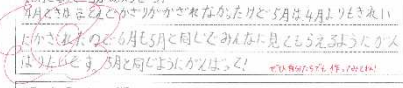 4月ときはほとんどかざりがかざれなかったけど5月は4月よりもきれい
にかざれたので6月も5月と同じでみんなに見てもらえるようにがん
ばりたいです 5月と同じようにがんばって!
ぜひ自分たちでも作ってみてね!